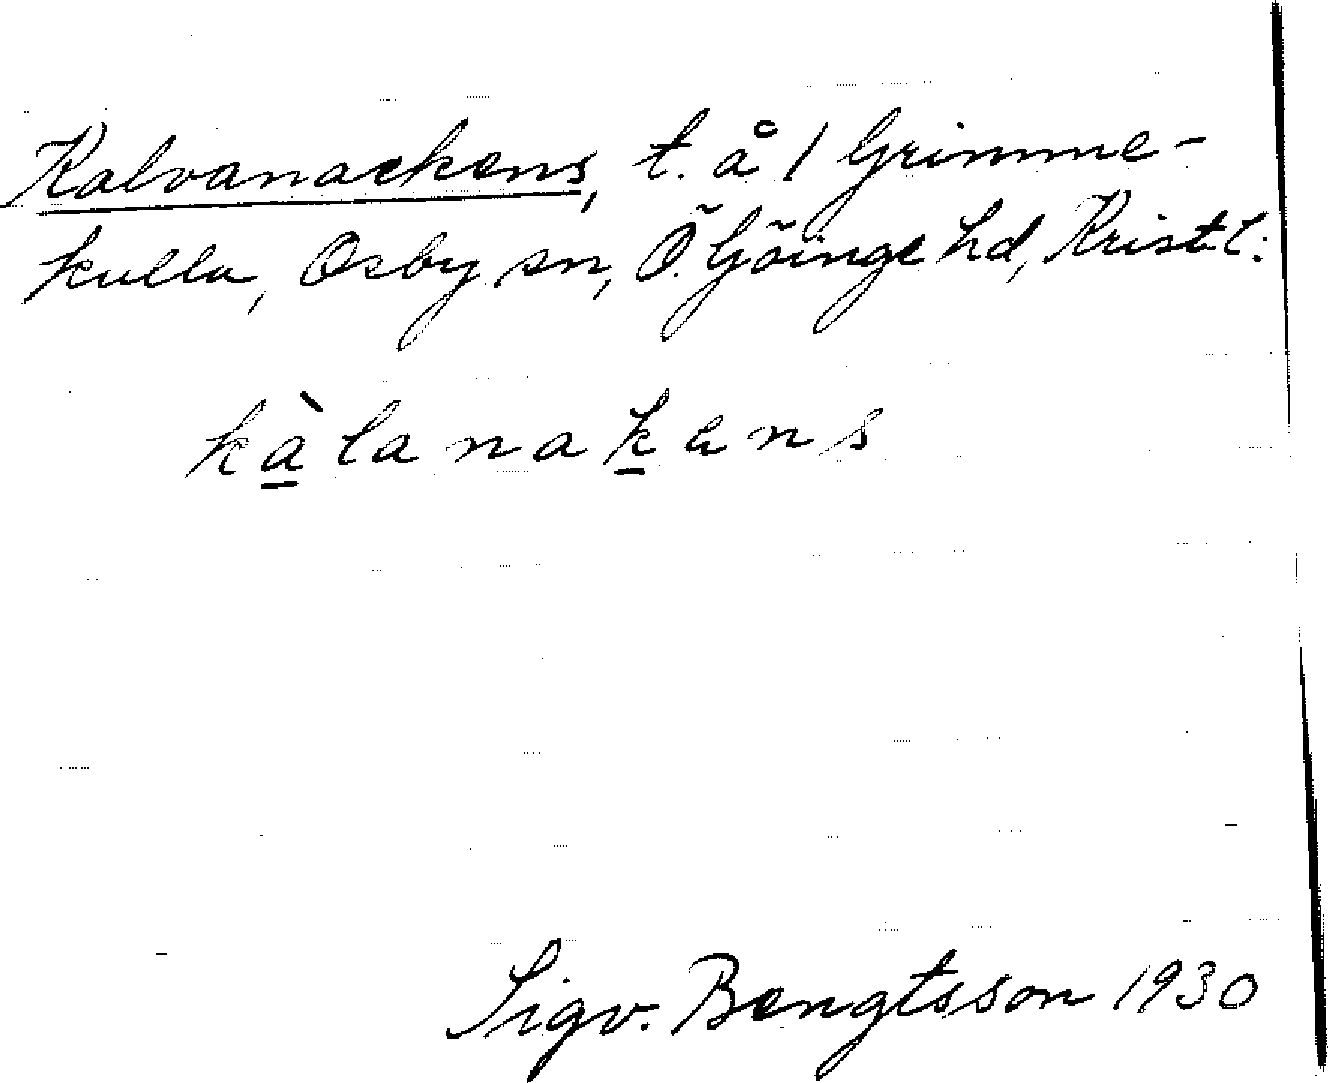 Kalvanackens, t. å 1 Grimme-
kulla, Osby sn, Ö. Göinge hd, Kristl:
kàlanakens
Sigv. Bengtsson 1930